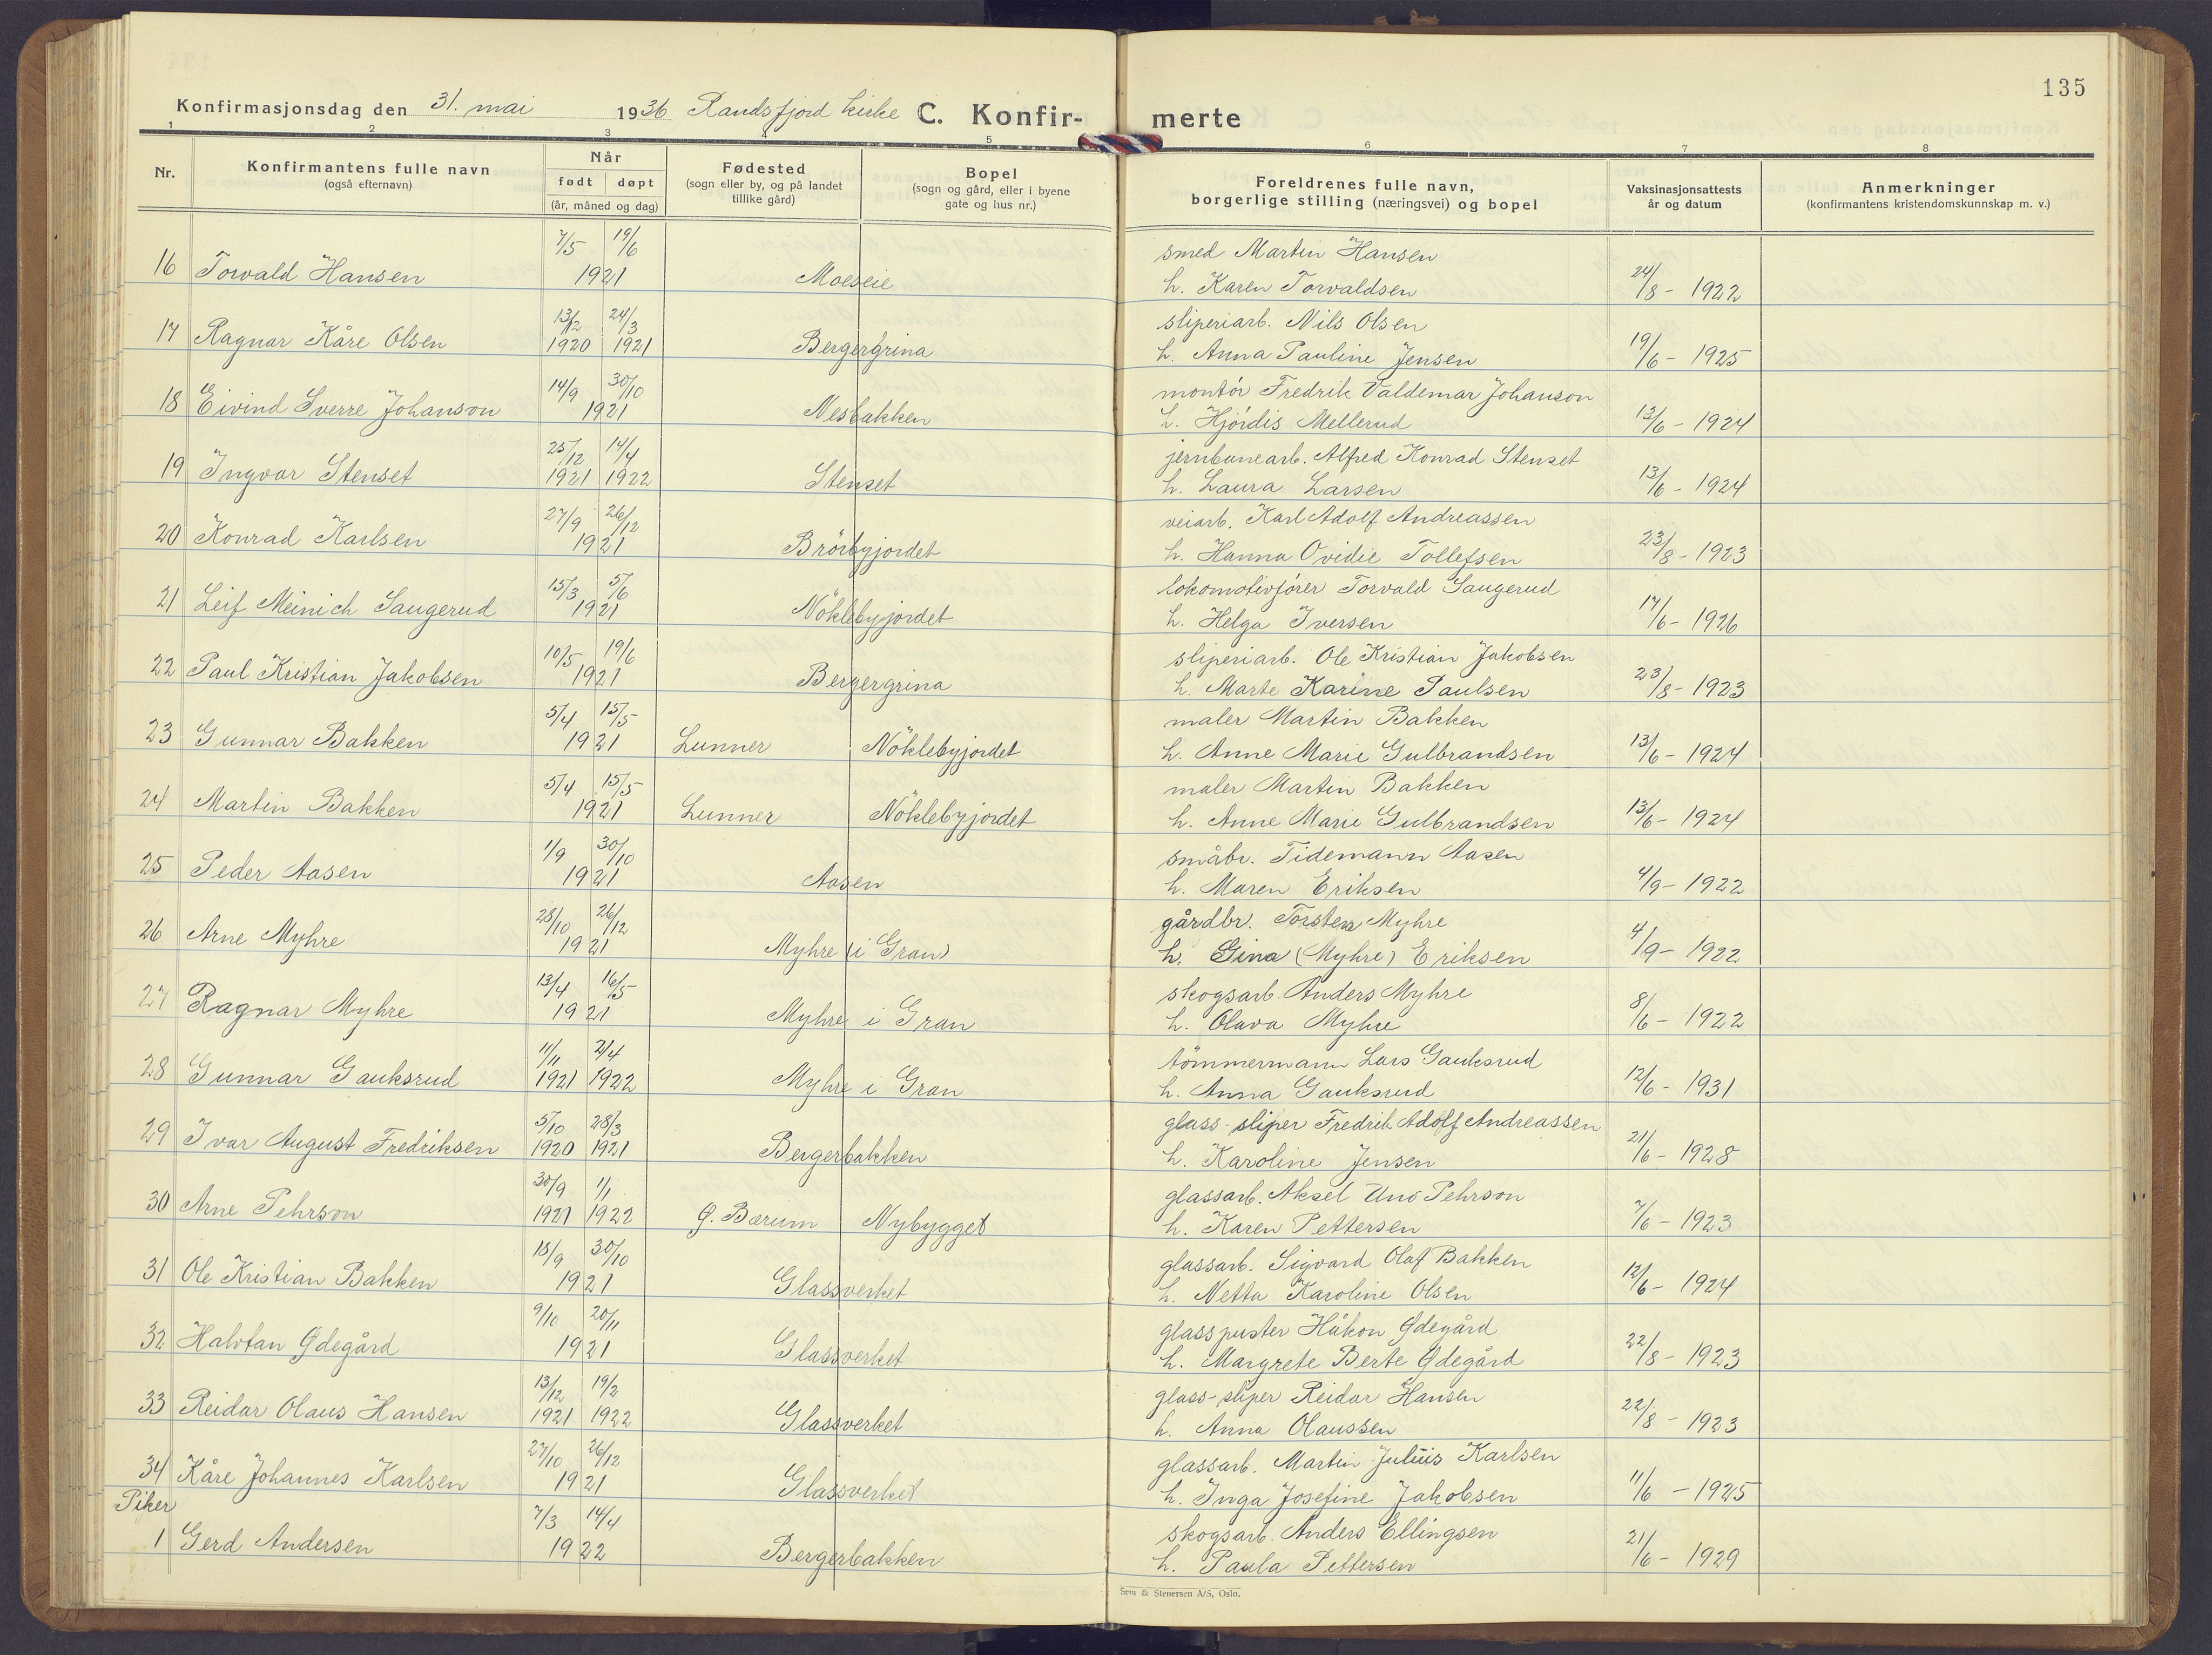 135
Konfirmasjonsdag den 31. mai 1936 Randsfjord kirke C. Konfir- merte
1 2 3 4 5 6 7 8
Nr.
Konfirmantens fulle navn
(også efternavn)
Når
født døpt
(år, måned og dag)
Fødested
(sogn eller by, og på landet
tillike gård)
Bopel
(sogn og gård, eller i byene
gate og hus nr.)
Foreldrenes fulle navn,
borgerlige stilling (næringsvei) og bopel
Vaksinasjonsattests
år og datum
Anmerkninger
(konfirmantens kristendomskunnskap m. v.)
7/5 19/6 smed Martin Hansen
16 Torvald Hansen 1921 Moeseie h. Karen Torvaldsen 24/8 - 1922
13/12 24/3 sliperiarb. Nils Olsen
17 Ragnar Kåre Olsen 1920 1921 Bergergrina h. Anna Pauline Jensen 19/6 - 1925
14/9 30/10 montör Fredrik Valdemar Johanson
18 Eivind Sverre Johanson 1921 Nesbakken h. Hjördis Mellerud 13/6 - 1924
25/12 14/4 jernbanearb. Alfred Konrad Stenset
19 Ingvar Stenset 1921 1922 Stenset h. Laura Larsen 13/6 - 1924
27/9 26/12 veiarb. Karl Adolf Andreassen
20 Konrad Karlsen 1921 Brörbyjordet h. Hanna Ovidie Tollefsen 23/8 - 1923
15/3 5/6 lokomotivförer Torvald Saugerud
21 Leif Meinich Saugerud 1921 Nöklebyjordet h. Helga Iversen 17/6 - 1926
10/5 19/6 sliperiarb. Ole Kristian Jakobsen
22 Paul Kristian Jakobsen 1921 Bergergrina h. Marte Karine Paulsen 23/8 - 1923
5/4 15/5 maler Martin Bakken
23 Gunnar Bakken 1921 Lunner Nöklebyjordet h. Anne Marie Gulbrandsen 13/6 - 1924
5/4 15/5 maler Martin Bakken
24 Martin Bakken 1921 Lunner Nöklebyjordet h. Anne Marie Gulbrandsen 13/6 - 1924
1/9 30/10 småbr. Tidemann Aasen
25 Peder Aasen 1921 Aasen h. Maren Eriksen 4/9 - 1922
28/10 26/12 gårdbr. Torsten Myhre
26 Arne Myhre 1921 Myhre (i Gran) h. Gina (Myhre) Eriksen 4/9 - 1922
13/4 16/5 skogsarb. Anders Myhre
27 Ragnar Myhre 1921 Myhre i Gran h. Olava Myhre 8/6 - 1922
11/11 2/4 tömmermann Lars Gauksrud
28 Gunnar Gauksrud 1921 1922 Myhre i Gran h. Anna Gauksrud 12/6 - 1931
5/10 28/3 glass-sliper Fredrik Adolf Andreassen
29 Ivar August Fredriksen 1920 1921 Bergerbakken h. Karoline Jensen 21/6 - 1928
30/9 1/1 glassarb. Aksel Uno Pehrson
30 Arne Pehrson 1921 1922 Ø. Bærum Nybygget h. Karen Pettersen 7/6 - 1923
18/9 30/10 glassarb. Sigvard Olaf Bakken
31 Ole Kristian Bakken 1921 Glassverket h. Netta Karoline Olsen 12/6 - 1924
9/10 20/11 glasspuster Håkon Ødegård
32 Halvtan Ødegård 1921 Glassverket h. Margrete Berte Ødegård 22/8 - 1923
13/12 19/2 glass-sliper Reidar Hansen
33 Reidar Olaus Hansen 1921 1922 Glassverket h. Anna Olaussen 22/8 - 1923
27/10 26/12 glassarb. Martin Julius Karlsen
34 Kåre Johannes Karlsen 1921 Glassverket h. Inga Josefine Jakobsen 11/6 - 1925
Piker 7/3 14/4 skogsarb. Anders Ellingsen
1 Gerd Andersen 1922 Bergerbakken h. Paula Pettersen 21/6 - 1929
Sem & Stenersen A/S, Oslo.